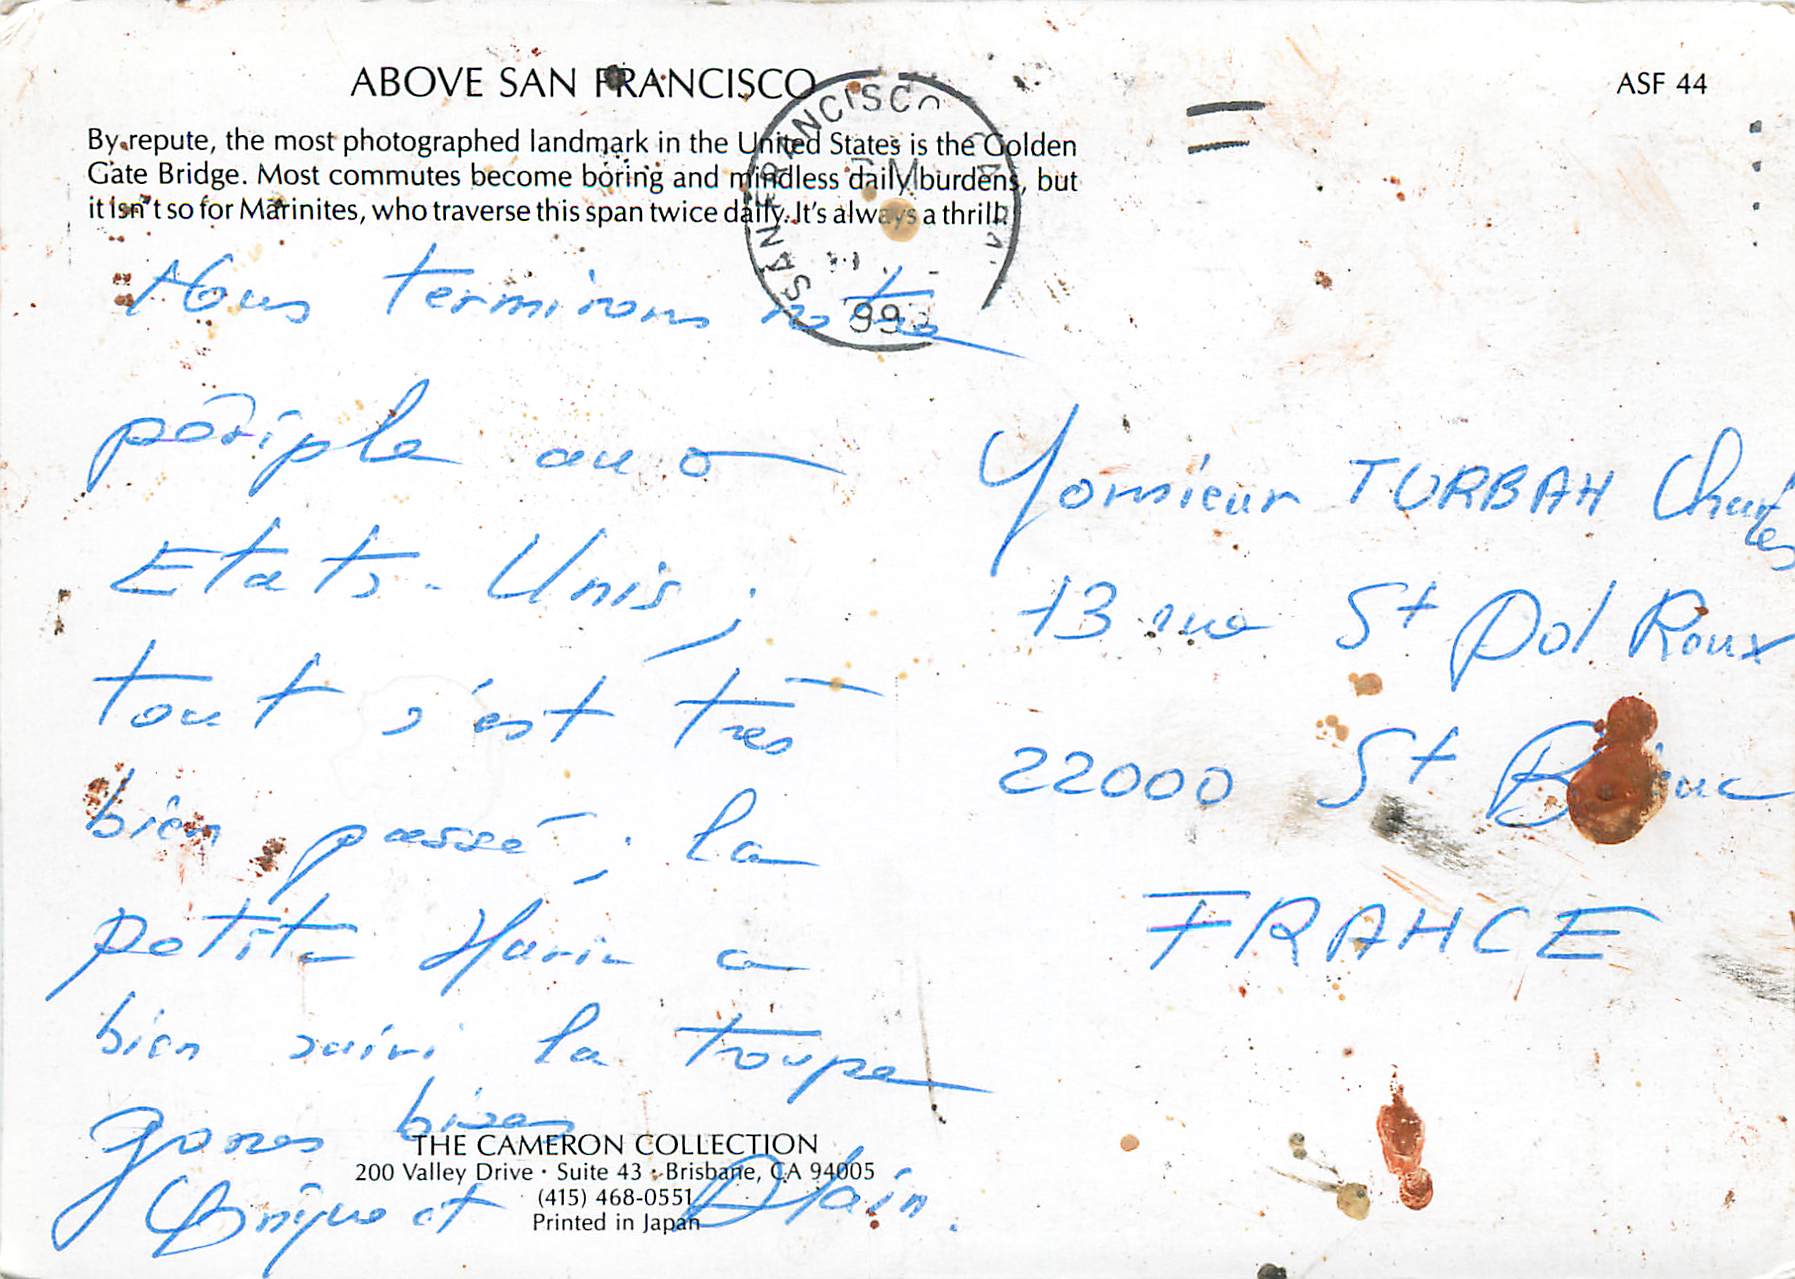 ABOVE SAN FRANCISCO
ASF 44
By repute, the most photographed landmark in the United States is the Golden
Gate Bridge. Most commutes become boring and mindless daily burdens, but
it isn't so for Marinites, who traverse this span twice daily. It's always a thrill.
SAN FRANCISCO CA
PM
Nous terminons notre
périple au
Etats-Unis ;
tout s'est très
bien passé ; la
petite Marie a
bien suivi la troupe
bises
et Alain.
Monsieur TURBAN Charles
13 rue St Pol Roux
22000 St
FRANCE
THE CAMERON COLLECTION
200 Valley Drive · Suite 43 · Brisbane, CA 94005
(415) 468-0551
Printed in Japan